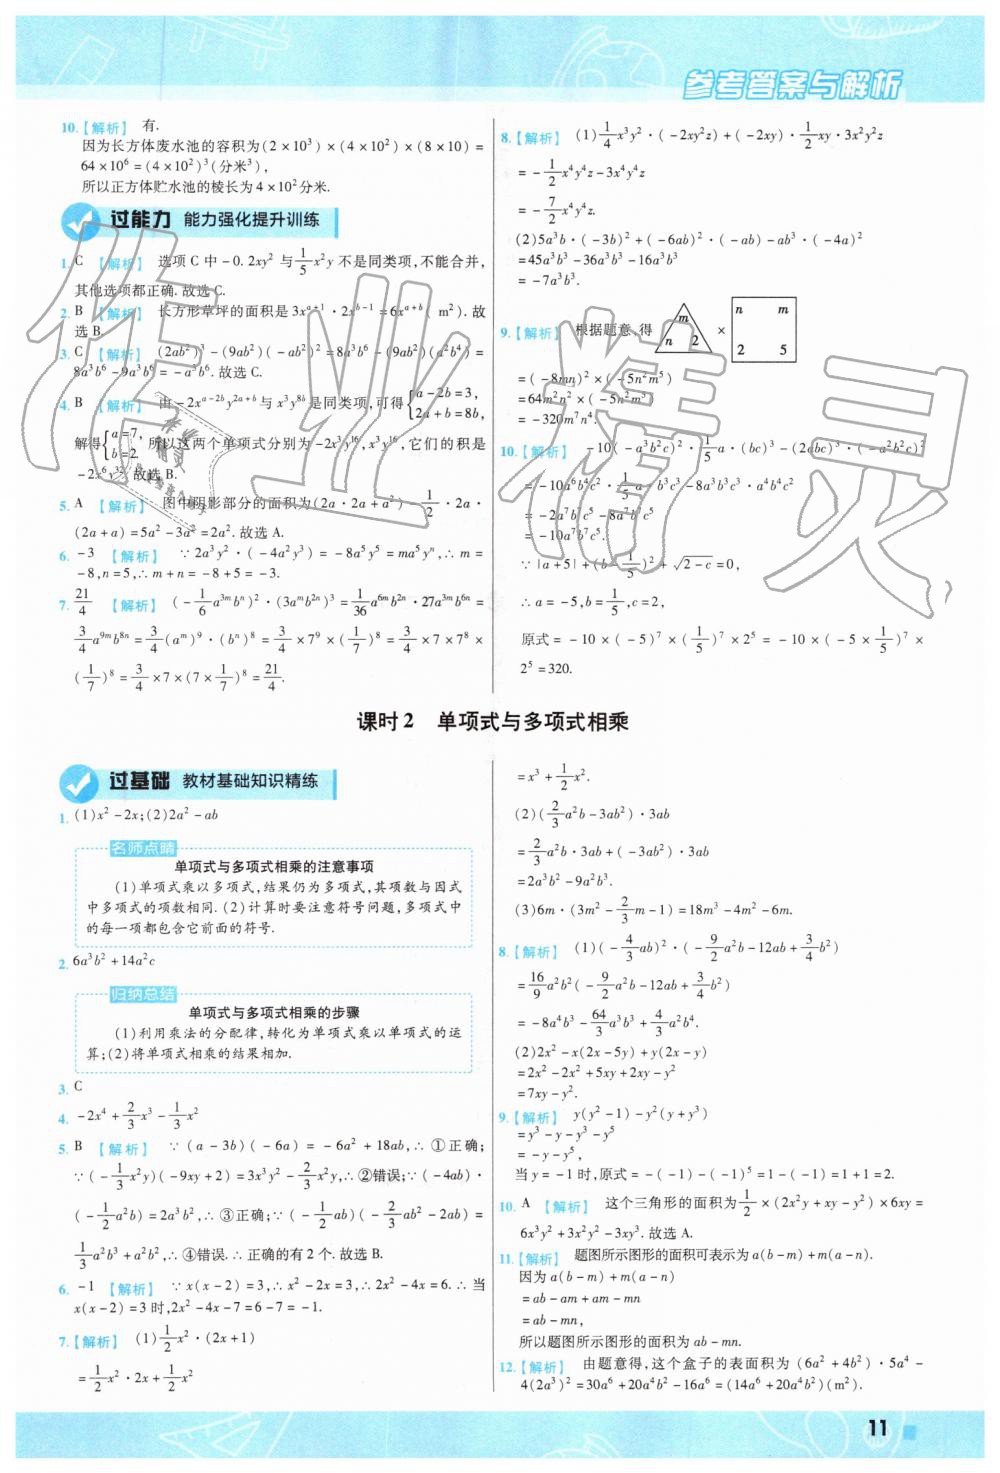 参考答案与解析
10.【解析】 有.
因为长方体废水池的容积为(2×10³)×(4×10²)×(8×10)=
64×10⁶=(4×10²)³(分米³),
所以正方体贮水池的棱长为4×10²分米.
过能力 能力强化提升训练
1. C 【解析】 选项C中-0.2xy²与\frac{1}{5}x²y不是同类项,不能合并,
其他选项都正确.故选C.
2. B 【解析】 长方形草坪的面积是3xᵃ⁺¹·2xᵇ⁻¹=6xᵃ⁺ᵇ(m²).故
选B.
3. C 【解析】 (2ab²)³-(9ab²)(-ab²)²=8a³b⁶-(9ab²)(a²b⁴)=
8a³b⁶-9a³b⁶=-a³b⁶.故选C.
4. B 【解析】 由-2x^{a-2b}y^{2a+b}与x³y^{8b}是同类项,可得{a-2b=3, 2a+b=8b,
解得{a=7, b=2. 所以这两个单项式分别为-2x³y¹⁶,x³y¹⁶,它们的积是
-2x⁶y³².故选B.
5. A 【解析】 图中阴影部分的面积为(2a·2a+a²)-\frac{1}{2}·2a·
(2a+a)=5a²-3a²=2a².故选A.
6. -3 【解析】 ∵2a³y²·(-4a²y³)=-8a⁵y⁵=ma⁵yⁿ,∴m=
-8,n=5,∴m+n=-8+5=-3.
7. \frac{21}{4} 【解析】 (-\frac{1}{6}a^{3m}bⁿ)²·(3aᵐb^{2n})³=\frac{1}{36}a^{6m}b^{2n}·27a^{3m}b^{6n}=
\frac{3}{4}a^{9m}b^{8n}=\frac{3}{4}(aᵐ)⁹·(bⁿ)⁸=\frac{3}{4}×7⁹×(\frac{1}{7})⁸=\frac{3}{4}×7×7⁸×
(\frac{1}{7})⁸=\frac{3}{4}×7×(7×\frac{1}{7})⁸=\frac{21}{4}.
8.【解析】 (1)\frac{1}{4}x³y²·(-2xy²z)+(-2xy)·\frac{1}{2}xy·3x²y²z
=-\frac{1}{2}x⁴y⁴z-3x⁴y⁴z
=-\frac{7}{2}x⁴y⁴z.
(2)5a³b·(-3b)²+(-6ab)²·(-ab)-ab³·(-4a)²
=45a³b³-36a³b³-16a³b³
=-7a³b³.
9.【解析】 根据题意,得 m n 2 × n m 2 5
=(-8mn)²×(-5n²m⁵)
=64m²n²×(-5n²m⁵)
=-320m⁷n⁴.
10.【解析】 -10(-a³b²c)²·\frac{1}{5}a·(bc)³-(2abc)³·(-a²b²c)²
=-10a⁶b⁴c²·\frac{1}{5}a·b³c³-8a³b³c³·a⁴b⁴c²
=-2a⁷b⁷c⁵-8a⁷b⁷c⁵
=-10a⁷b⁷c⁵.
∵|a+5|+(b-\frac{1}{5})²+\sqrt{2-c}=0,
∴a=-5,b=\frac{1}{5},c=2,
原式=-10×(-5)⁷×(\frac{1}{5})⁷×2⁵=-10×(-5×\frac{1}{5})⁷×
2⁵=320.
课时2 单项式与多项式相乘
过基础 教材基础知识精练
1. (1)x²-2x;(2)2a²-ab
名师点睛
单项式与多项式相乘的注意事项
(1)单项式乘以多项式,结果仍为多项式,其项数与因式
中多项式的项数相同.(2)计算时要注意符号问题,多项式中
的每一项都包含它前面的符号.
2. 6a³b²+14a²c
归纳总结
单项式与多项式相乘的步骤
(1)利用乘法的分配律,转化为单项式乘以单项式的运
算;(2)将单项式相乘的结果相加.
3. C
4. -2x⁴+\frac{2}{3}x³-\frac{1}{3}x²
5. B 【解析】 ∵(a-3b)(-6a)=-6a²+18ab,∴①正确;
∵(-\frac{1}{3}x²y)(-9xy+2)=3x³y²-\frac{2}{3}x²y,∴②错误;∵(-4ab)·
(-\frac{1}{2}a²b)=2a³b²,∴③正确;∵(-\frac{1}{2}ab)(-\frac{2}{3}ab²-2ab)=
\frac{1}{3}a²b³+a²b²,∴④错误.∴正确的有2个.故选B.
6. -1 【解析】 ∵x(x-2)=3,∴x²-2x=3,∴2x²-4x=6.∴当
x(x-2)=3时,2x²-4x-7=6-7=-1.
7.【解析】 (1)\frac{1}{2}x²·(2x+1)
=\frac{1}{2}x²·2x+\frac{1}{2}x²
=x³+\frac{1}{2}x².
(2)(\frac{2}{3}a²b-3ab²)·3ab
=\frac{2}{3}a²b·3ab+(-3ab²)·3ab
=2a³b²-9a²b³.
(3)6m·(3m²-\frac{2}{3}m-1)=18m³-4m²-6m.
8.【解析】 (1)(-\frac{4}{3}ab)²·(-\frac{9}{2}a²b-12ab+\frac{3}{4}b²)
=\frac{16}{9}a²b²(-\frac{9}{2}a²b-12ab+\frac{3}{4}b²)
=-8a⁴b³-\frac{64}{3}a³b³+\frac{4}{3}a²b⁴.
(2)2x²-x(2x-5y)+y(2x-y)
=2x²-2x²+5xy+2xy-y²
=7xy-y².
9.【解析】 y(y²-1)-y²(y+y³)
=y³-y-y³-y⁵
=-y-y⁵,
当y=-1时,原式=-(-1)-(-1)⁵=1-(-1)=1+1=2.
10. A 【解析】 这个三角形的面积为\frac{1}{2}×(2x²y+xy-y²)×6xy=
6x³y²+3x²y²-3xy³.故选A.
11.【解析】 题图所示图形的面积可表示为a(b-m)+m(a-n).
因为a(b-m)+m(a-n)
=ab-am+am-mn
=ab-mn,
所以题图所示图形的面积为ab-mn.
12.【解析】 由题意得,这个盒子的表面积为(6a²+4b²)·5a⁴-
4(2a³)²=30a⁶+20a⁴b²-16a⁶=(14a⁶+20a⁴b²)(m²).
11
作业精灵